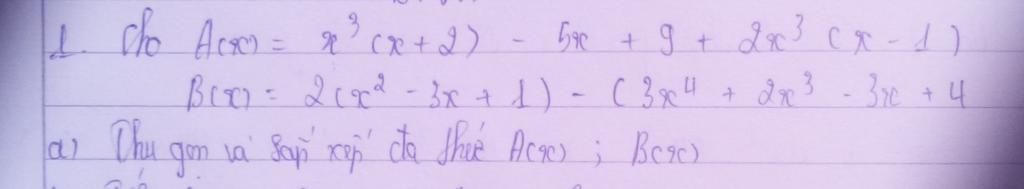 1. Cho A(x) = x³(x+2) - 5x + 9 + 2x³(x-1)
B(x) = 2(x² - 3x + 1) - (3x⁴ + 2x³ - 3x + 4
a) Thu gọn và sắp xếp đa thức A(x) ; B(x)